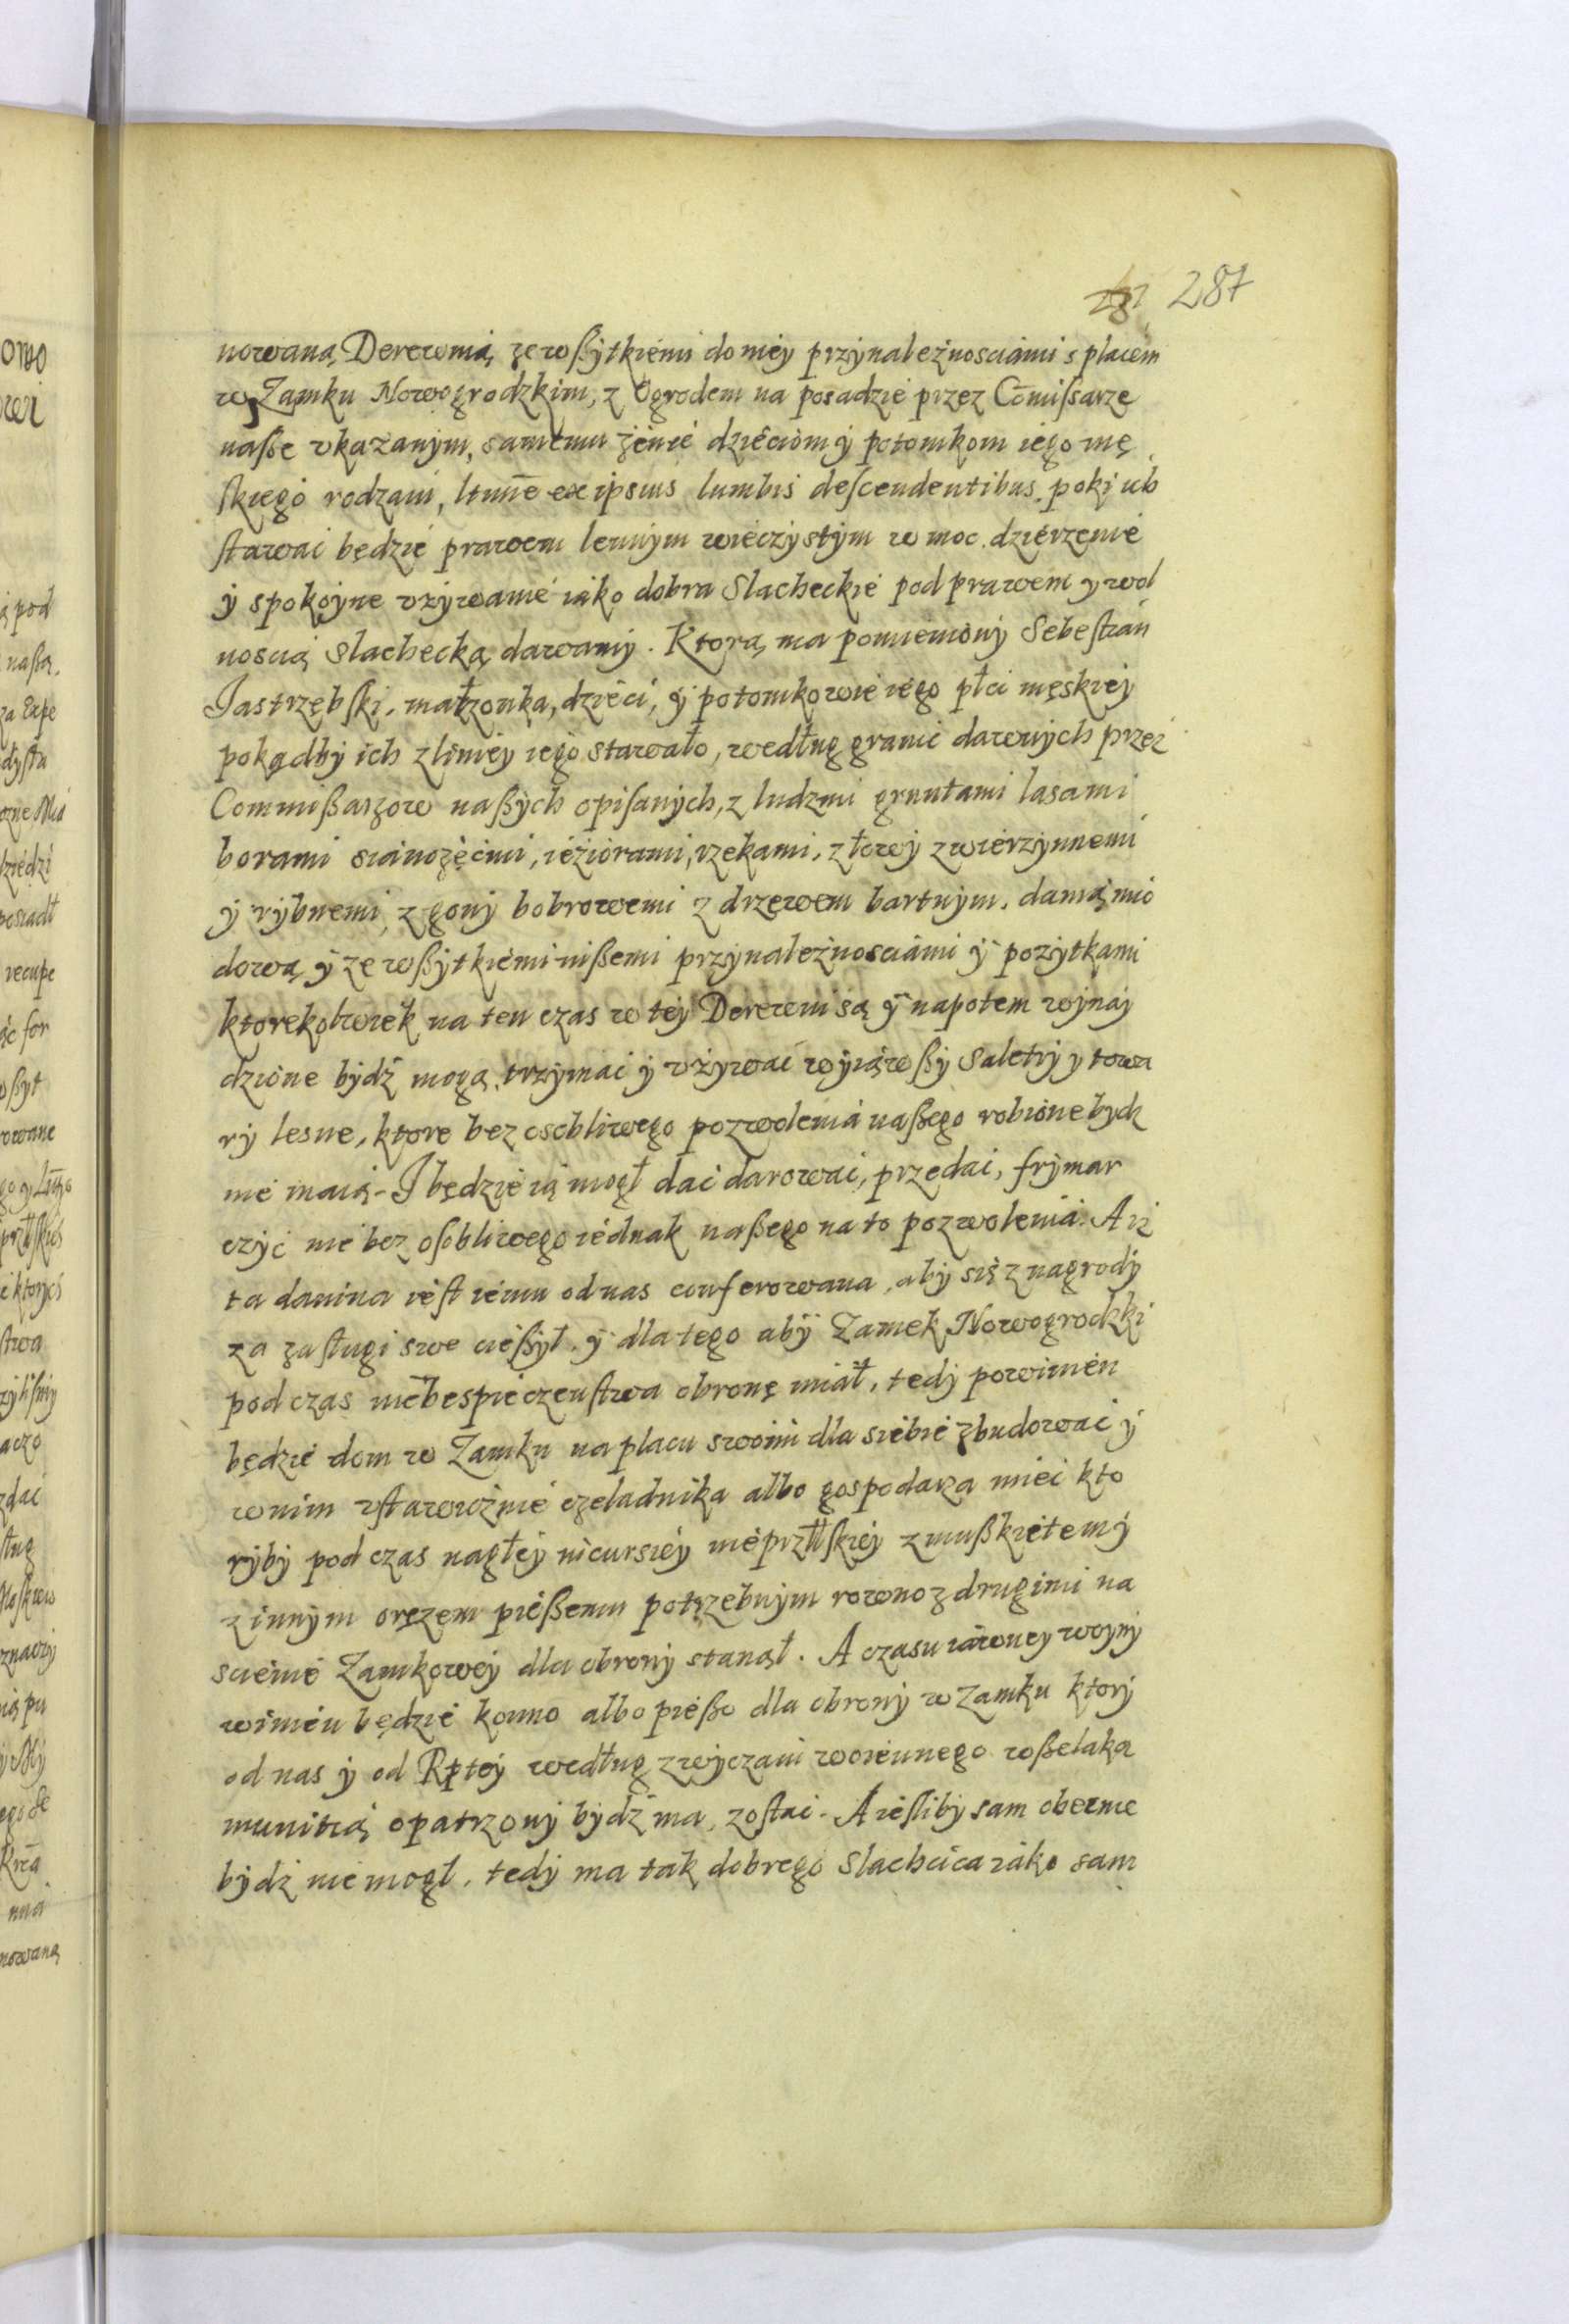 287
nowaną Derewnią ze wßytkiemi do niey przynależnosciami s placem
w Zamku Nowogrodzkim, z Ogrodem na posadzie przez Comißarze
naße vkazanym, samemu żenie dzieciom y potomkom iego mę
skiego rodzaiu, ltimē ex ipsius lumbis descendentibus poki ich
stawać będzie prawem lennym wieczystym w moc dzierżenie
y spokoyne vżywanie iako dobra Slacheckie pod prawem y wol
noscią Slachecką dawamy. Ktorą ma pomieniony Sebestian
Iastrzębski, małżonka, dzieci, y potomkowie iego płci męskiey
pokądby ich z liniey iego stawało, według granic dawnych przez
Commißarzow naßych opisanych, z ludzmi gruntami lasami
borami sianożęćmi, ieziorami, rzekami, z łowy zwierzynnemi
y rybnemi, z gony bobrowemi z drzewem bartnym, danią mio
dową y ze wßytkiemi inßemi przynależnosciami y pożytkami
ktorekolwiek na ten czas w tey Derewni są y napotem wynay
dzione bydź mogą, trzymać y vżywać wyiąwßy Saletry y towa
ry lesne, ktore bez osobliwego pozwolenia naßego robione bydz
nie maią. I będzie ią mogł dać darować, przedać, frymar
czyć nie bez osobliwego iednak naßego na to pozwolenia. A iż
ta danina iest iemu od nas conferowana, aby się z nagrody
za zasługi swe cießył, y dla tego aby Zamek Nowogrodzki
pod czas niebespieczeństwa obronę miał, tedy powinien
będzie dom w Zamku na placu swoim dla siebie zbudować y
w nim vstawicznie czeladnika albo gospodarza mieć kto
ryby pod czas nagłey incursiey nieprzłskiey z mußkietem y
z innym orężem pießemu potrzebnym rowno z drugimi na
scienie Zamkowey dla obrony stanął. A czasu iawney woyny
winien będzie konno albo pießo dla obrony w Zamku ktory
od nas y od Rptey według zwyczaiu woiennego wßelaką
munitią opatrzony bydź ma, zostać. A iesliby sam obecnie
bydź nie mogł, tedy ma tak dobrego Slachcica iako sam